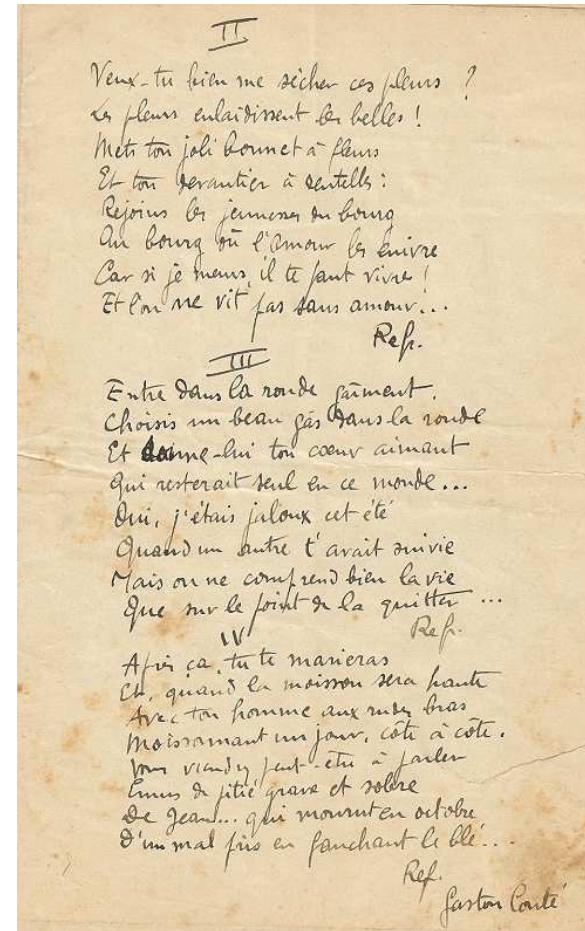 II
Veux-tu bien me sécher ces pleurs ?
Les pleurs enlaidissent les belles !
Mets ton joli bonnet à fleurs
Et ton devantier à dentelles :
Rejoins les jeunesses du bourg
Au bourg où l'amour les enivre
Car si je meurs, il te faut vivre !
Et l'on ne vit pas sans amour...
Refr.
III
Entre dans la ronde gaîment.
Choisis un beau gâs dans la ronde
Et donne-lui ton coeur aimant
Qui resterait seul en ce monde...
Oui, j'étais jaloux cet été
Quand un autre t'avait suivie
Mais on ne comprend bien la vie
Que sur le point de la quitter ...
Refr.
IV
Après ça, tu te marieras
Et, quand la moisson sera haute
Avec ton homme aux rudes bras
Moissonnant un jour, côte à côte.
Vous viendrez peut-être à parler
Emus de pitié grave et sobre
De Jean... qui mourut en octobre
D'un mal pris en fauchant le blé...
Ref.
Gaston Couté